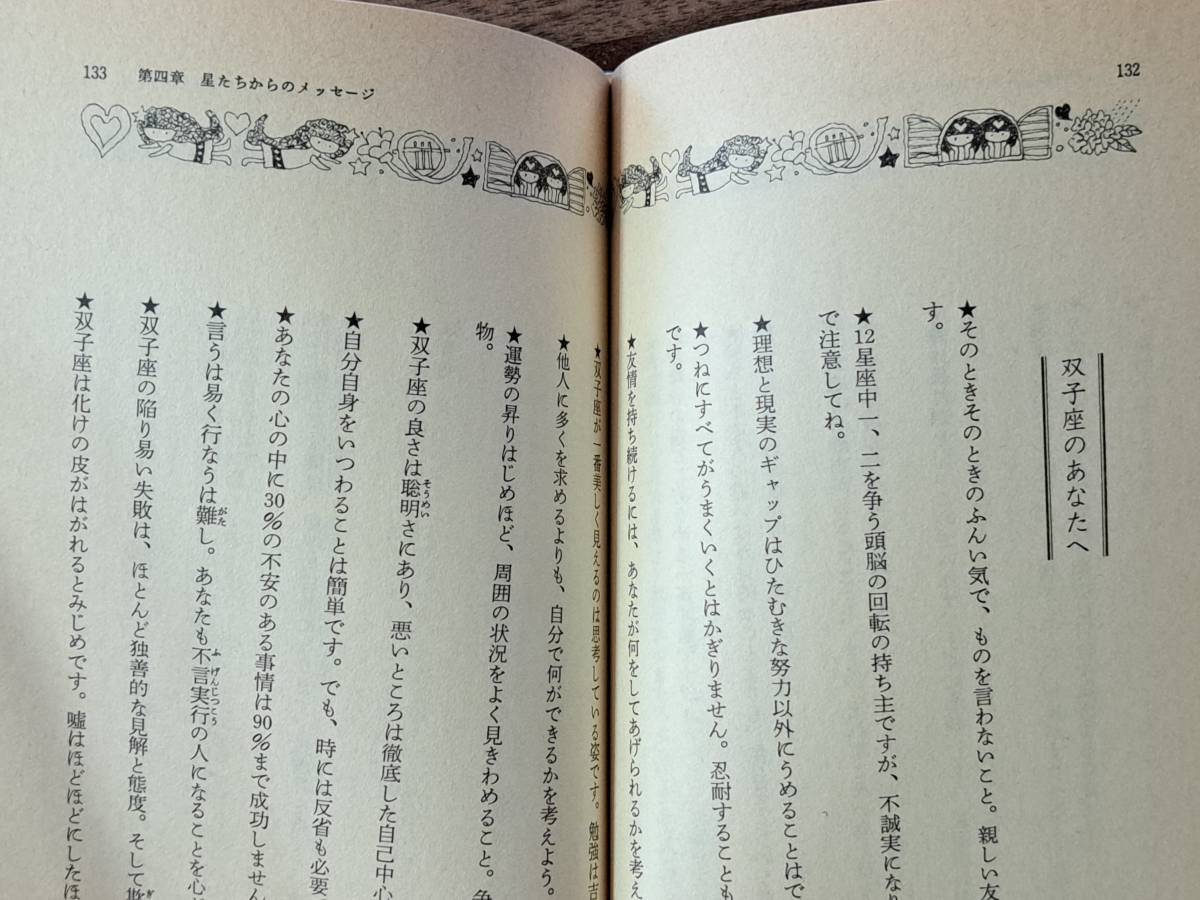 132
双子座のあなたへ
★そのときそのときのふんい気で、ものを言わないこと。親しい友
す。
★12星座中一、二を争う頭脳の回転の持ち主ですが、不誠実になり
で注意してね。
★理想と現実のギャップはひたむきな努力以外にうめることはで
★つねにすべてがうまくいくとはかぎりません。忍耐することも
です。
★友情を持ち続けるには、あなたが何をしてあげられるかを考え
133 第四章 星たちからのメッセージ
★双子座が一番美しく見えるのは思考している姿です。勉強は吉
★他人に多くを求めるよりも、自分で何ができるかを考えよう。
★運勢の昇りはじめほど、周囲の状況をよく見きわめること。
物。
★双子座の良さは聡明さにあり、悪いところは徹底した自己中心
★自分自身をいつわることは簡単です。でも、時には反省も必要
★あなたの心の中に30%の不安のある事情は90%まで成功しません
★言うは易く行なうは難し。あなたも不言実行の人になることを心
★双子座の陥り易い失敗は、ほとんど独善的な見解と態度。そして
★双子座は化けの皮がはがれるとみじめです。嘘はほどほどにしたほ